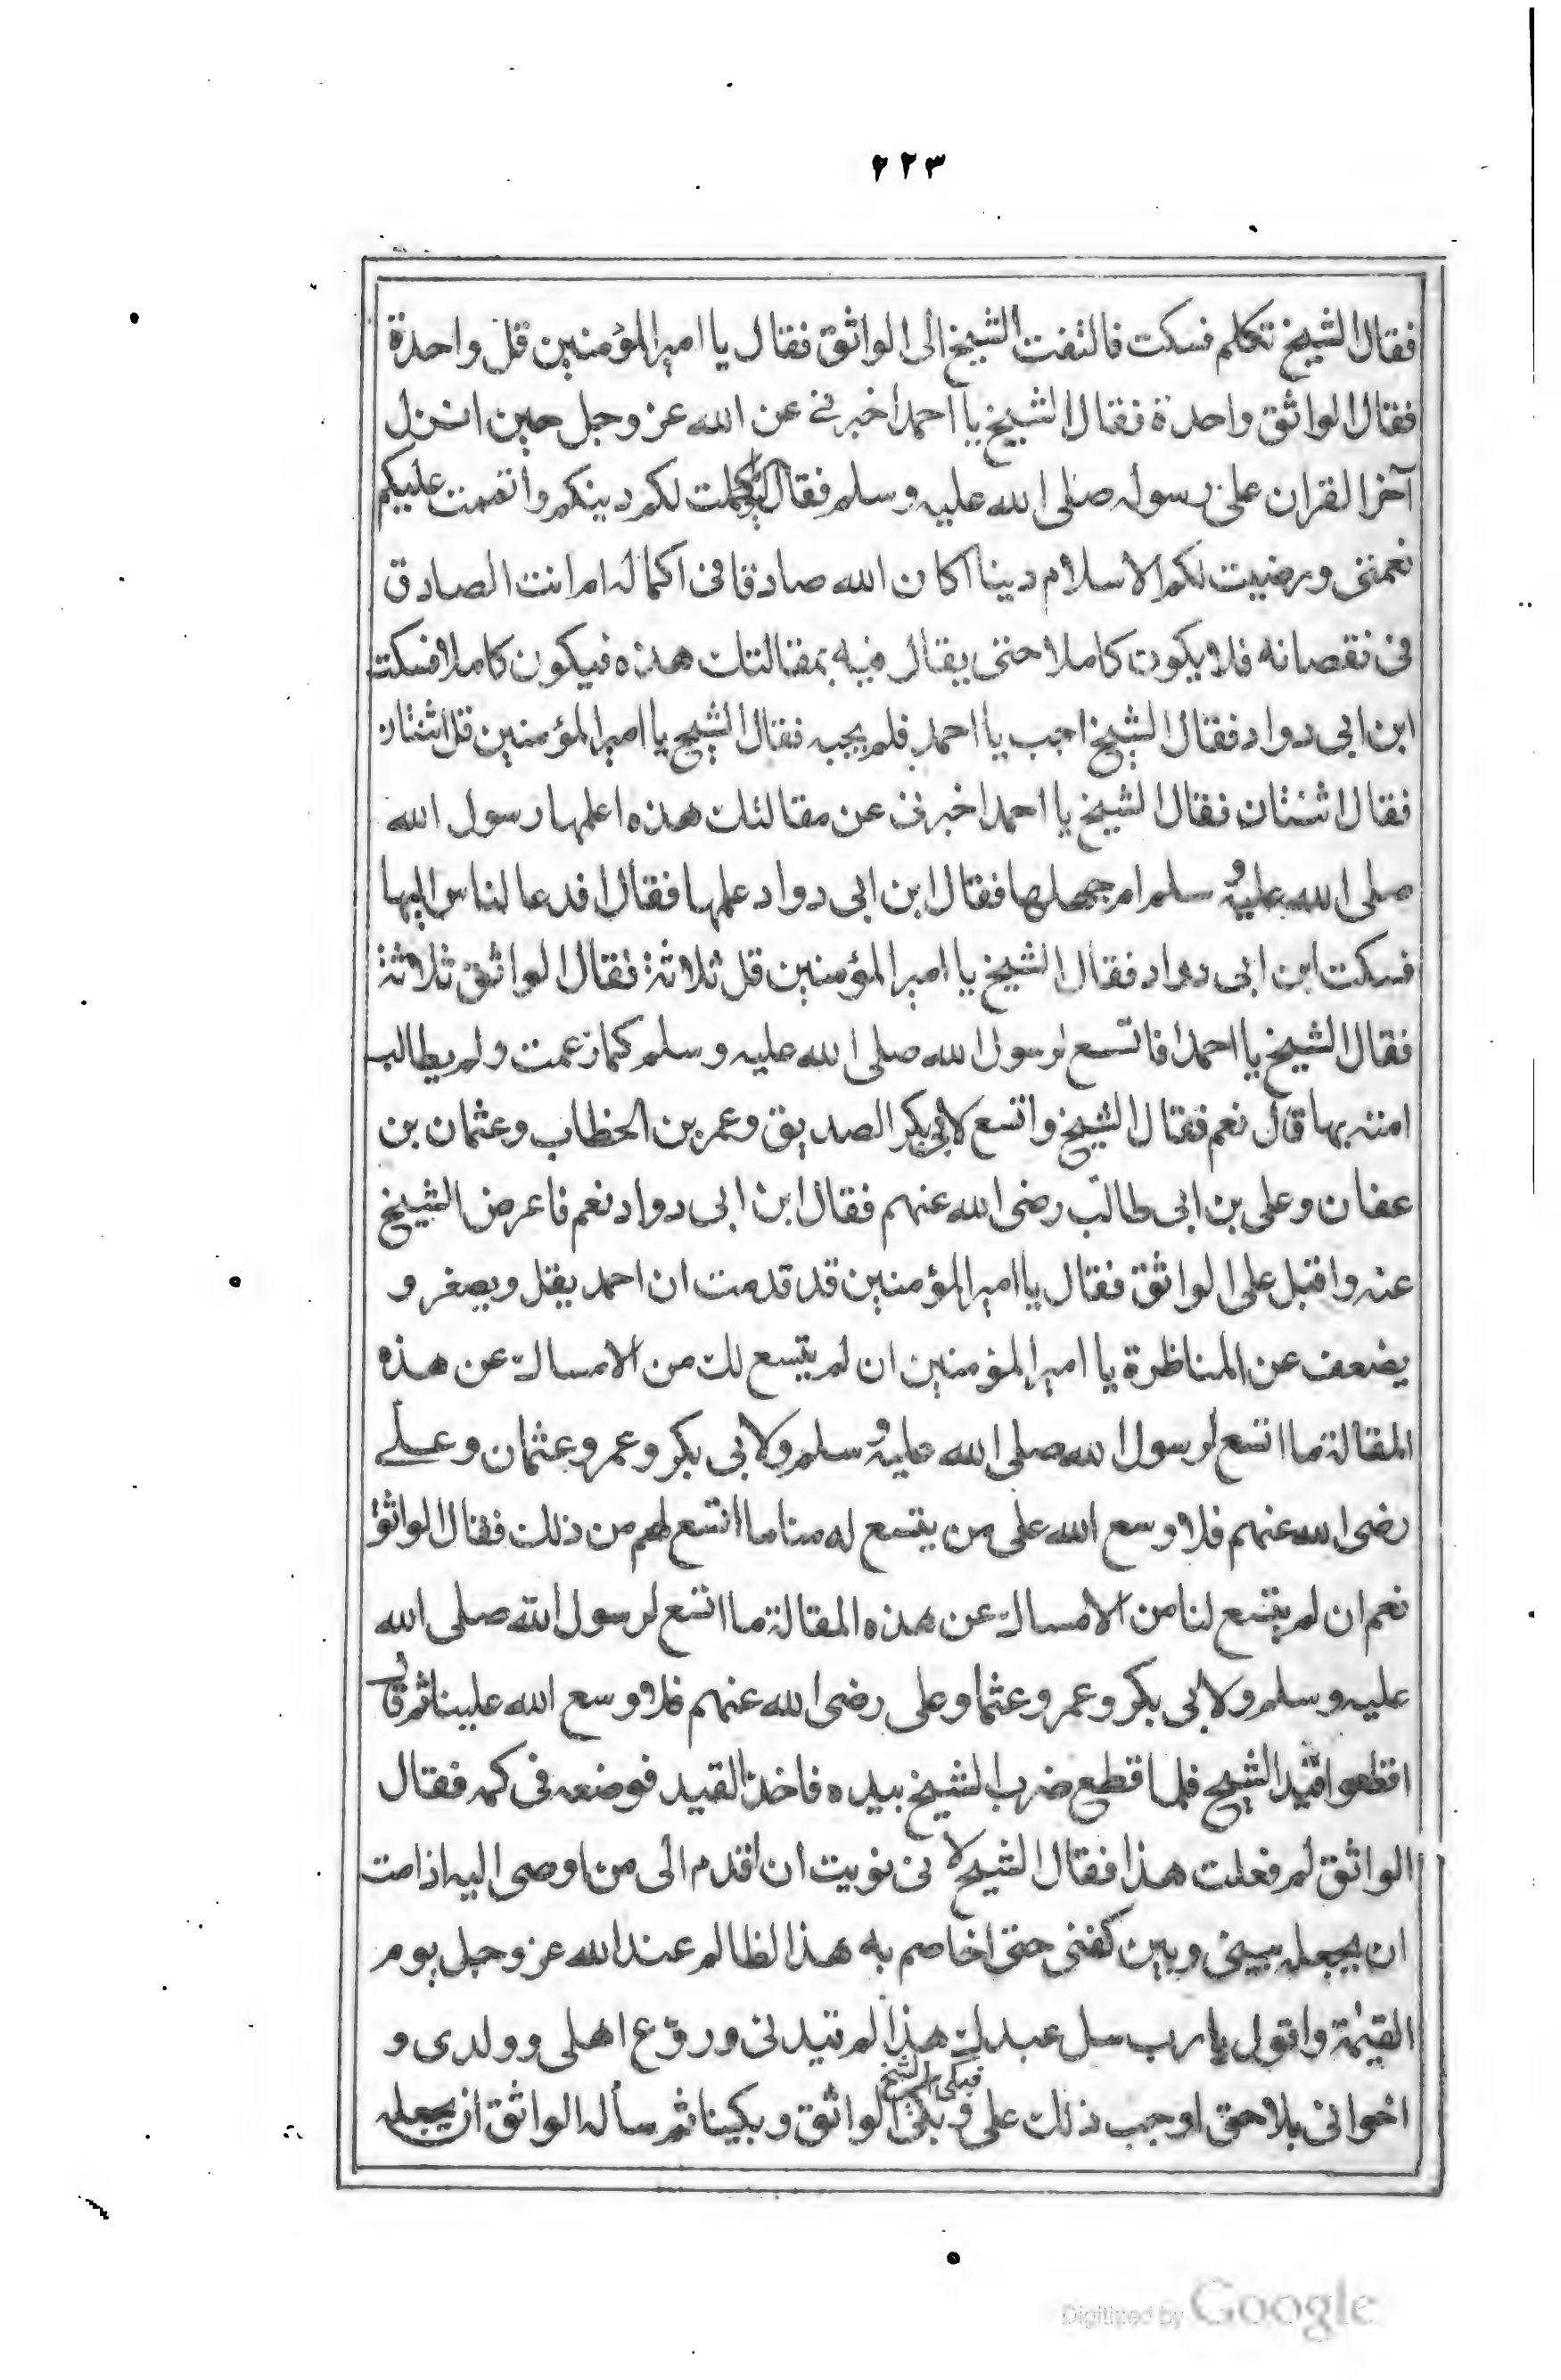 ٢٢٣
فقال الشيخ تكلم فسكت فالتفت الشيخ الى الواثق فقال يا امير المؤمنين قل واحدة
فقال الواثق واحدة فقال الشيخ يا احمد اخبرنى عن الله عز وجل حين انزل
آخر القران على رسوله صلى الله عليه وسلم فقال اليوم اكملت لكم دينكم واتممت عليكم
نعمتى ورضيت لكم الاسلام دينا اكان الله صادقا فى اكماله ام انت الصادق
فى نقصانه فلا يكون كاملا حتى يقال فيه بمقالتك هذه فيكون كاملا فسكت
ابن ابى دواد فقال الشيخ اجب يا احمد فلم يجبه فقال الشيخ يا امير المؤمنين قل اثنتان
فقال اثنتان فقال الشيخ يا احمد اخبرنى عن مقالتك هذه اعلمها رسول الله
صلى الله عليه وسلم ام جهلها فقال ابن ابى دواد علمها فقال افدعا لناس اليها
فسكت ابن ابى دواد فقال الشيخ يا امير المؤمنين قل ثلاثة فقال الواثق ثلاثة
فقال الشيخ يا احمد افاتسع لرسول الله صلى الله عليه وسلم كما زعمت ولم يطالب
امته بها قال نعم فقال الشيخ واتسع لابى بكر الصديق وعمر بن الخطاب وعثمان بن
عفان وعلى بن ابى طالب رضى الله عنهم فقال ابن ابى دواد نعم فاعرض الشيخ
عنه واقبل على الواثق فقال يا امير المؤمنين قد قدمت ان احمد يقل ويصغر و
يضعف عن المناظرة يا امير المؤمنين ان لم يتسع لك من الامساك عن هذه
المقالة ما اتسع لرسول الله صلى الله عليه وسلم ولابى بكر وعمر وعثمان وعلى
رضى الله عنهم فلا وسع الله على من يتسع له منا ما اتسع لهم من ذلك فقال الواثق
نعم ان لم يتسع لنا من الامساك عن هذه المقالة ما اتسع لرسول الله صلى الله
عليه وسلم ولابى بكر وعمر وعثما وعلى رضى الله عنهم فلا وسع الله علينا ثم قال
اقطعوا قيد الشيخ فلما قطع ضرب الشيخ بيده فاخذ القيد فوضعه فى كمه فقال
الواثق لم فعلت هذا فقال الشيخ لانى نويت ان اقدم الى من اوصى اليه اذا مت
ان يجعله بينى وبين كفنى حتى اخاصم به هذا لظالم عند الله عز وجل يوم
القيمة واقول يا رب سل عبدك هذا لم قيدنى وروّع اهلى وولدى و
اخوانى بلا حق اوجب ذلك على فبكى الشيخ وبكى الواثق وبكينا ثم سأله الواثق ان يجعله
Digitized by Google